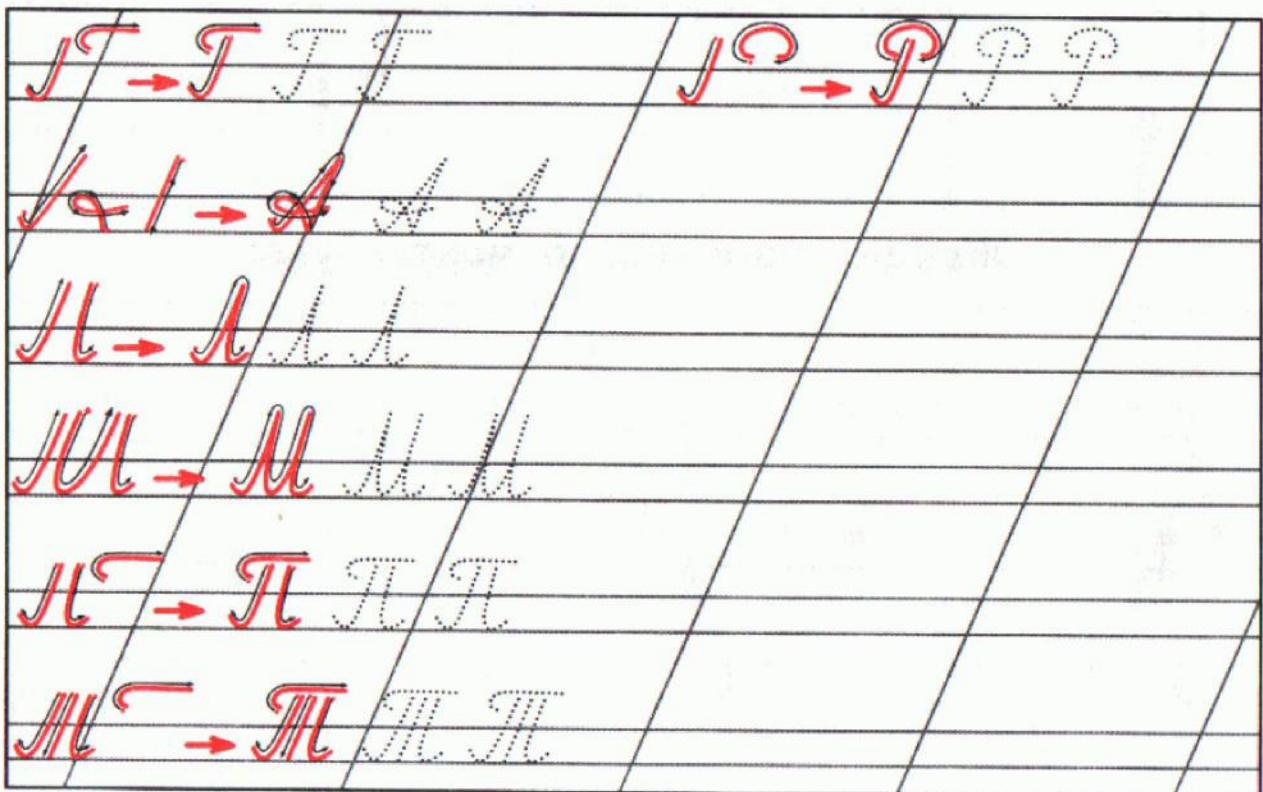 Г Г Г Р Р Р
А А А
Л Л Л
М М М
П П П
Т Т Т